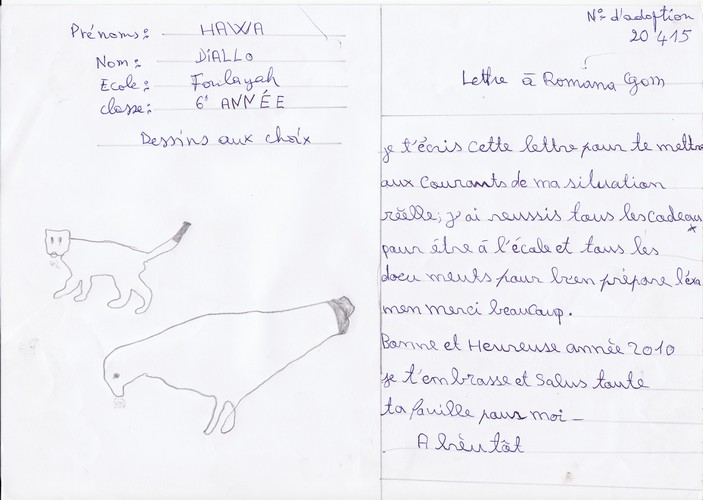 Prénoms: HAWA
Nom: DiALLO
Ecole: Foulayah
classe: 6e ANNÉE
Dessins aux choix
N° d'adoption
20 415
Lettre à Romana Gom
je t'écris cette lettre pour te mettre
aux courants de ma situation
réelle; j'ai reussis tous les cadeaux
pour être à l'école et tous les
documents pour bien prépare l'éxa
men merci beaucoup.
Bonne et Heureuse année 2010
je t'embrasse et Salus toute
ta famille pour moi -
A bientôt